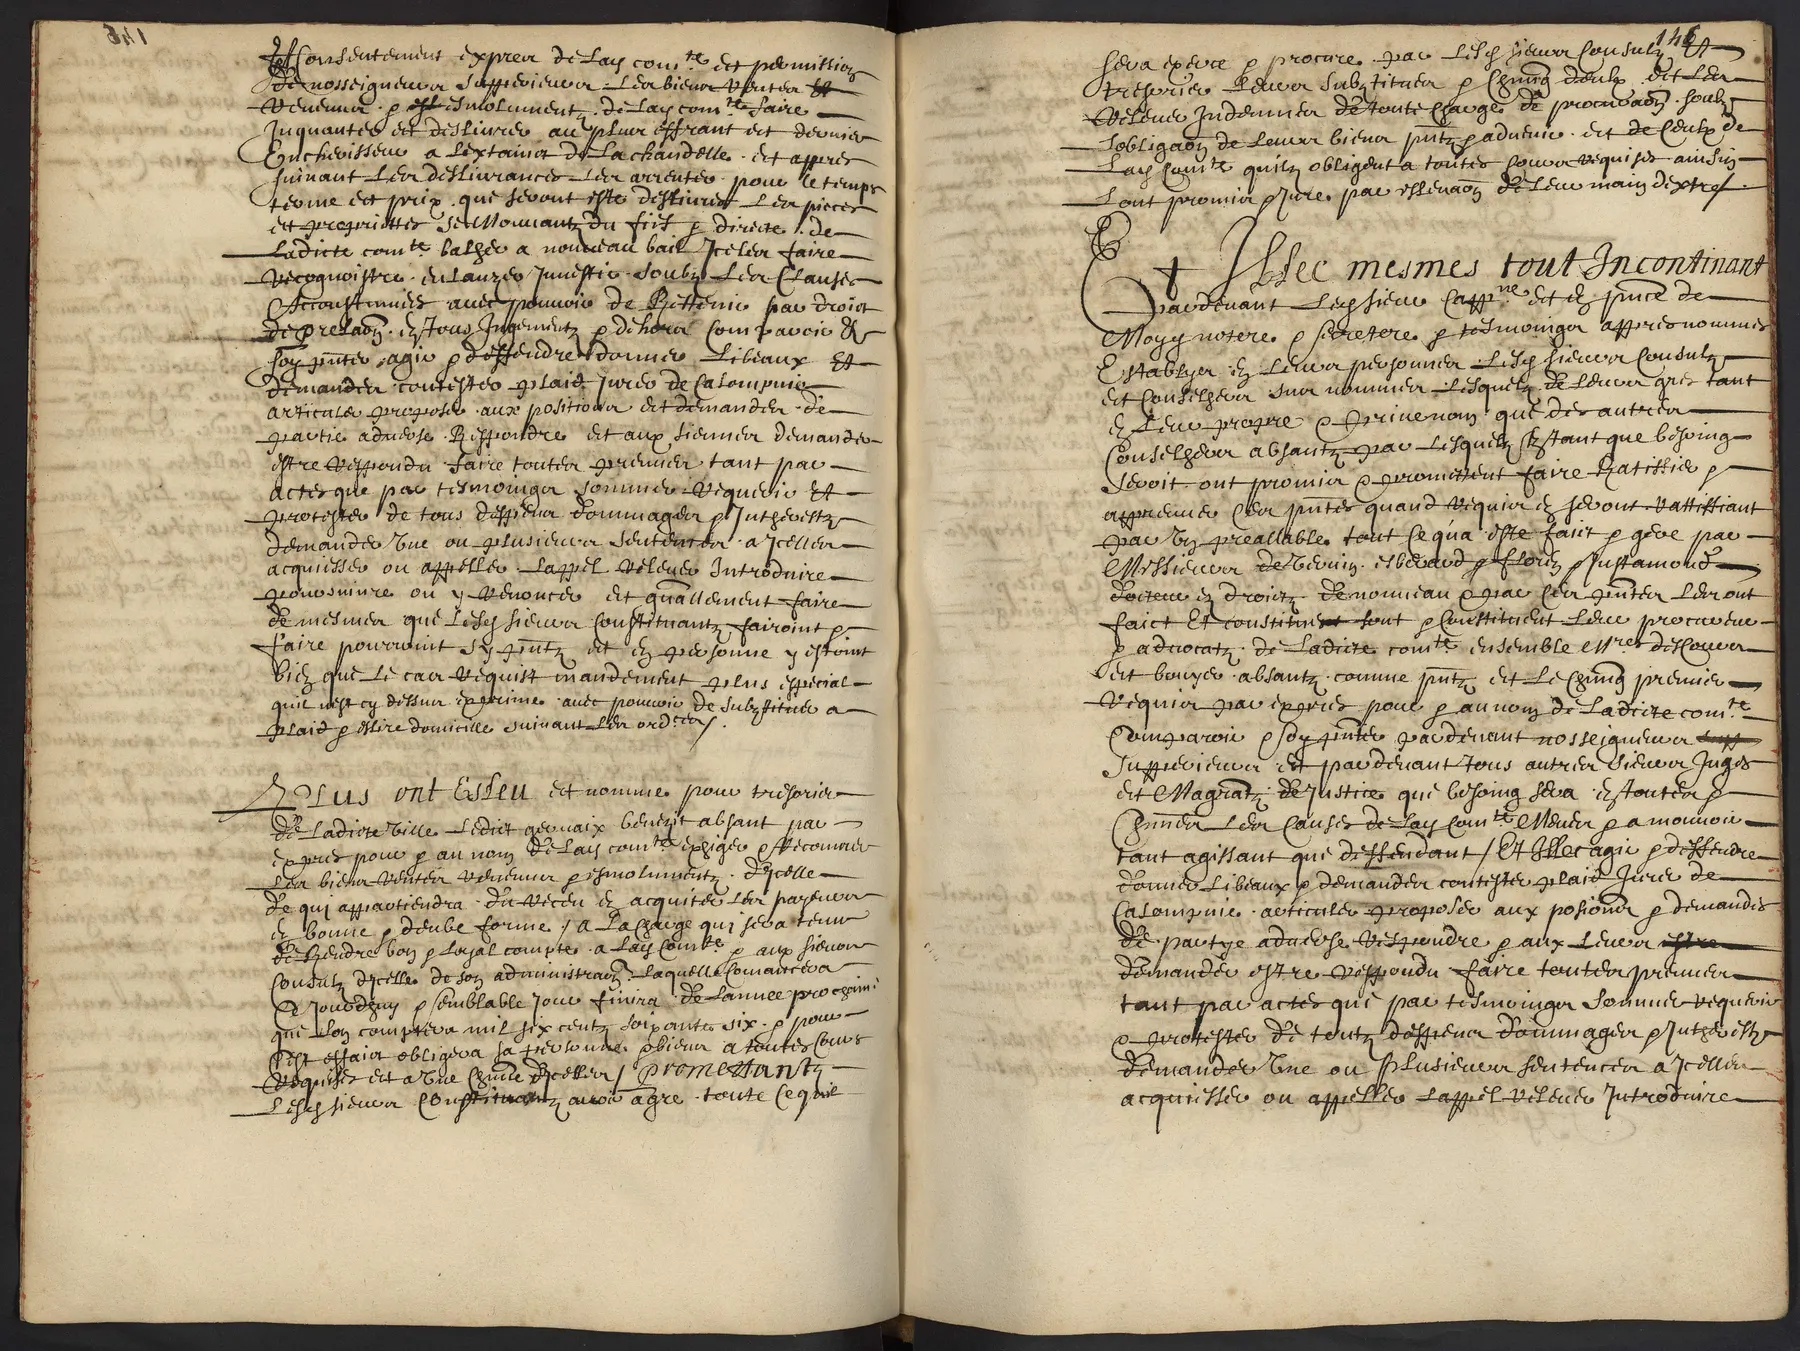 Et Consentement exprez de lad com.te et permission
de nosseigneurs Supperieurs les biens rentes Et
revenus & esmolumentz de lad com.te faire
Inquanter et deslivrer au plus offrant et dernier
Encherisseur a lextainct de la chandelle et appres
suivant les deslivrances les arrenter pour le temps
terme et prix que seront este deslivres les pieces
et proprietes se Mouvantz du fief & directe de
ladicte com.te bailher a nouveau bail Iceles faire
recognoistre en lauzer Investir soubz les Clauses
Accoustumées avec pouvoir de Rettenir par droict
de prelaon en tous Jugementz & dehors Comparoir &
soy pnter agir & deffendre donner libeaux Et
demandes contester plaid jurer de Calompnie
articuler proposer aux positions et demandes de
partie adverse Respondre et aux siennes demander
estre respondu faire toutes preuves tant par
actes que par tesmoings sommer requerir Et
protester de tous despens dommages & Intherestz
demander Une ou plusieurs sentences a Icelles
acquiesser ou appeller lappel relever Introduire
poursuivre ou y renoncer et gnallement faire
de mesmes que lesd sieurs Constituantz fairoint &
faire pourroint sy pntz et en personne y estoint
bien que le cas requist mandement plus especial
quil nest cy dessus exprime avec pouvoir de substituer a
plaid & eslire domicille suivant les ordces /.
Plus ont Esleu et nomme pour tresorier
de ladicte Ville Ledict gervaix benezit absant par
exprez pour & au nom de lad com.te exiger & Recouvrer
les biens rentes revenus & esmolumentz dIcelle
de qui appartiendra du receu en acquiter les payeurs
en bonne & deube forme / a la charge quj sera tenu
de Rendre bon & loyal compte a lad Com.te & aux sieurs
Consulz dIcelle de son administraon laquelle Comancera
Ce Jourdhuy & semblable jour finira de lannee prochaine
que lon comptera mil six centz soixante six & pour
Cest effaict obligera sa personne & biens a toutes Cours
requises et a Une Chune dIcelles / Promettantz
Lesd sieurs Constituantz avoir agre toute Ce quil
146
sera exerce & procure par Lesd sieurs Consulz Et
tresorier leurs substitues & Chung deulx et les
relever Indemnes de toute charge de procuraon soubz
lobligaon de leurs biens pntz & advenir et de Ceulx de
lad Com.te quilz obligent a toutes Cours requises ainsin
Lont promis & Jure par ellevaon de leur main dextre /.
Et Illec mesmes tout Incontinant
Pardevant Led sieur Capp.ne et en pnce de
Moyy notere & secretere & tesmoings appres nommes
Establyes en leurs personnes Lesd sieurs Consulz
et Conselhers sus nommes Lesquelz de leurs gres tant
en leur propre & prive nom que des autres
Conselhers absantz par lesquelz En tant que besoing
seroit ont promis & promettent faire Ratiffier &
appreuver Ces pntes quand requis en seront rattiffiant
par Un preallable tout Ce qua este faict & gere par
Messieurs de
docteurs en droictz de nouveau & par Ces pntes les ont
faict Et constitues sont & Constituent leur procureur
& advocatz de Ladicte com.te ensemble Mres descours
et bouyer absantz comme pntz et le Chung premier
requis par exprez pour & au nom de Ladicte com.te
Comparoir & soy pnter pardevant nosseigneurs
Supperieurs et pardevant tous autres sieurs Juges
et Magratz de Justice que besoing sera en toutes &
Chunes Les Causes de Lad Com.te Meues & a mouvoir
tant agissant que deffendant / Et Illec agir & deffendre
donner Libeaux & demandes contester plaid Jurer de
Calompnie articuler proposer aux posions & demandes
de partye adverse respondre & aux leurs estre
demander estre respondu faire toutes preuves
tant par actes que par tesmoings sommer requerir
& protester de toutz despens dommages & Intherestz
demander Une ou plusieurs sentences a Icelles
acquiesser ou appeller Lappel relever Introduire